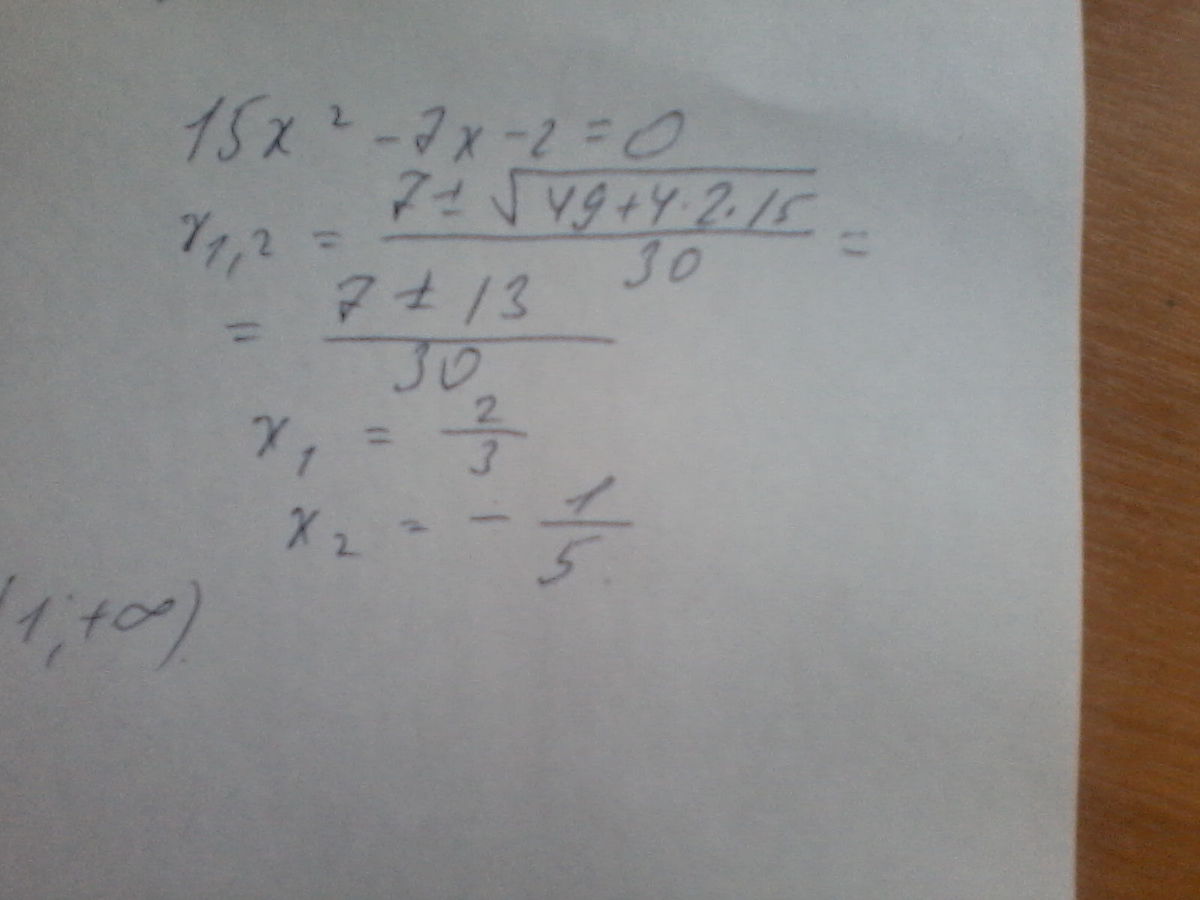 15x² - 7x - 2 = 0
x₁,₂ = (7 ± √(49 + 4·2·15))/30 =
= (7 ± 13)/30
x₁ = 2/3
x₂ = - 1/5
(1; +∞)